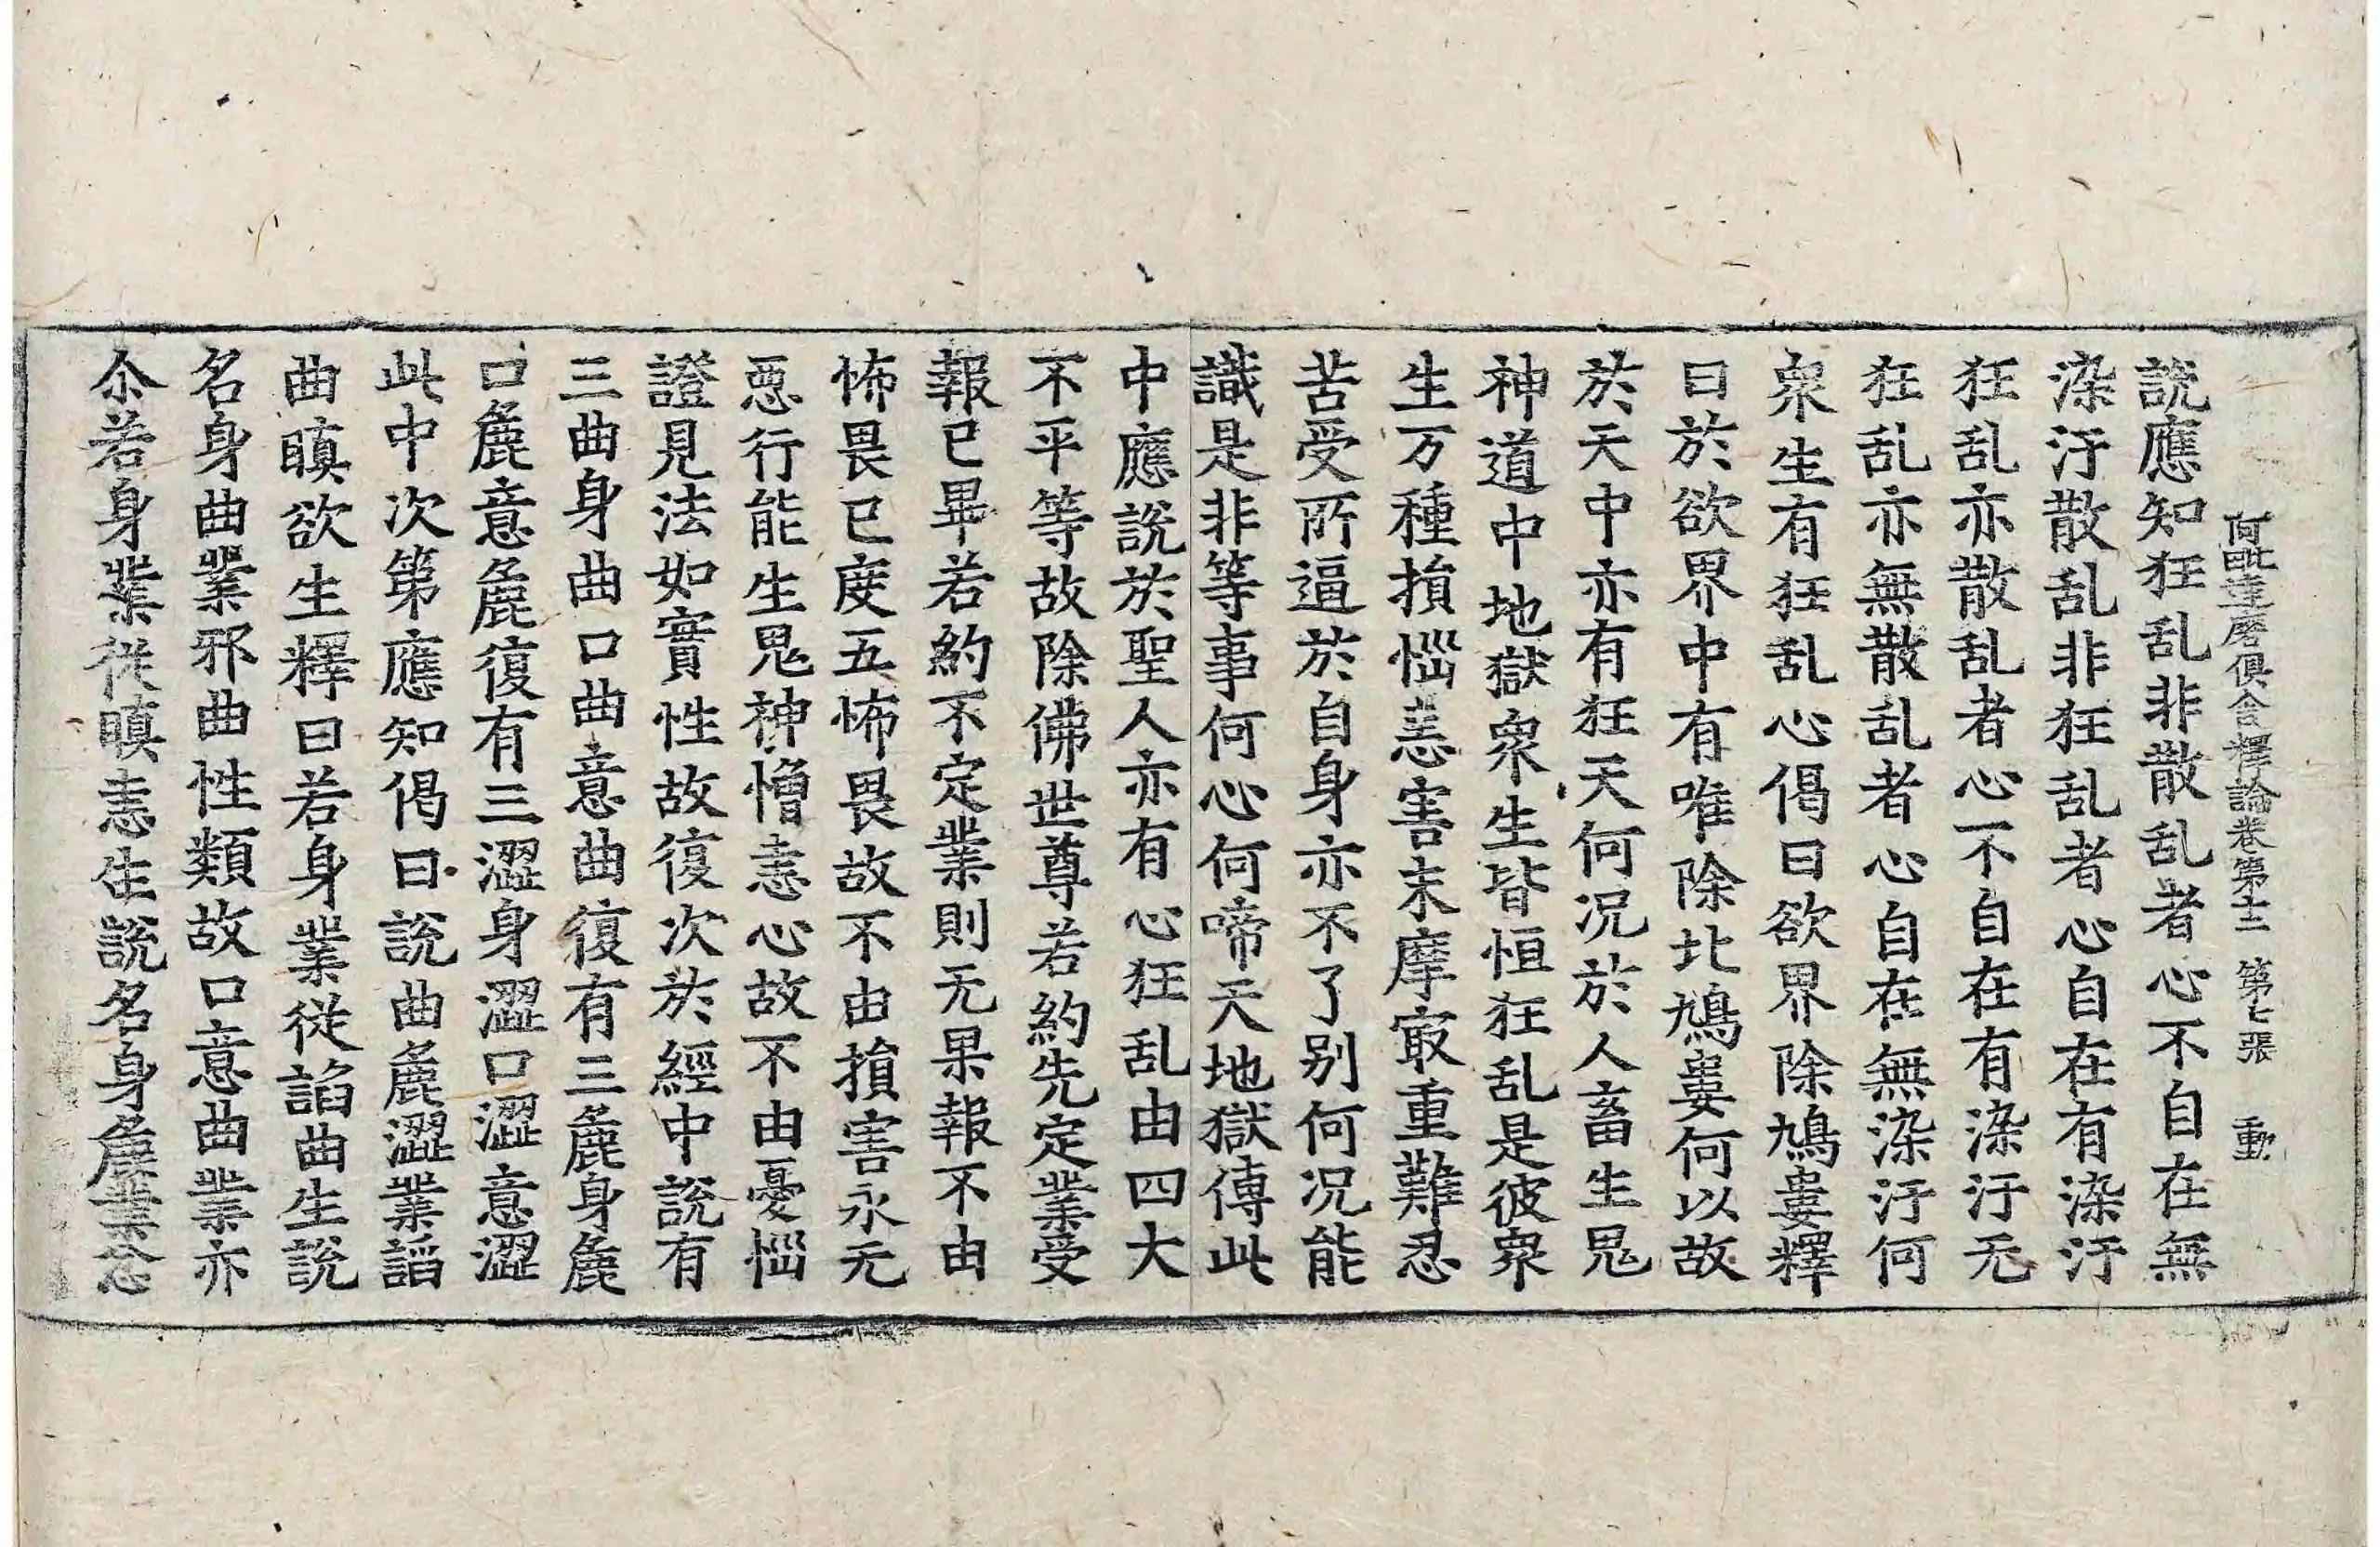 阿毗達磨俱舍釋論卷第十二 第七張 動
說應知狂乱非散乱者心不自在無
染汙散乱非狂乱者心自在有染汙
狂乱亦散乱者心不自在有染汙无
狂乱亦無散乱者心自在無染汙何
衆生有狂乱心偈曰欲界除鳩婁釋
曰於欲界中有唯除北鳩婁何以故
於天中亦有狂天何况於人畜生鬼
神道中地獄衆生皆恒狂乱是彼衆
生万種損惱恚害末摩冣重難忍
苦受所逼於自身亦不了别何况能
識是非等事何心何啼天地獄傳此
中應說於聖人亦有心狂乱由四大
不平等故除佛世尊若約先定業受
報已畢若約不定業則无果報不由
怖畏已度五怖畏故不由損害永无
惡行能生鬼神憎恚心故不由憂惱
證見法如實性故復次於經中說有
三曲身曲口曲意曲復有三麁身麁
口麁意麁復有三澀身澀口澀意澀
此中次第應知偈曰說曲麁澀業諂
曲瞋欲生釋曰若身業從諂曲生說
名身曲業邪曲性類故口意曲業亦
尒若身業從瞋恚生說名身麁業忿